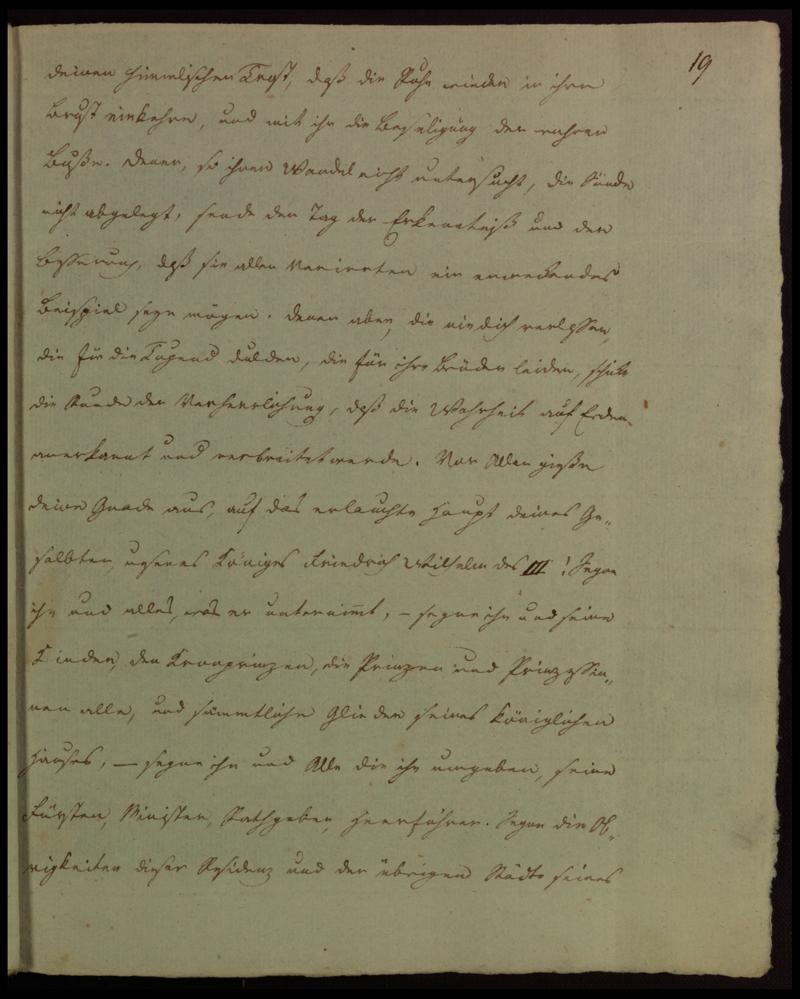 19
deinen himmlischen Trost, daß die Ruhe wieder in ihre
Brust einkehre, und mit ihr die Beseligung der wahren
Buße. Denen, so ihren Wandel nicht untersucht, die Sünde
nicht abgelegt, sende den Tag der Erkenntniß und der
Besserung, daß sie allen Verirrten ein erweckendes
Beispiel seyn mögen. Denen aber, die nie dich verlassen,
die für die Tugend dulden, die für ihre Brüder leiden, schicke
die Stunde der Verherrlichung, daß die Wahrheit auf Erden
anerkannt und verbreitet werde. Vor Allen gieße
deine Gnade aus, auf das erlauchte Haupt deines Ge-
salbten, unseres Königes Friedrich Wilhelm des III! Segne
ihn und alles, was er unternimt, – segne ihn und seine
Kinder, den Kronprinzen, die Prinzen und Prinzessin-
nen alle, und sämmtliche Glieder seines Königlichen
Hauses, — segne ihn und Alle die ihn umgeben, seine
Fürsten, Minister, Rathgeber, Heerführer. Segne die Ob-
rigkeiten dieser Residenz und der übrigen Städte seines